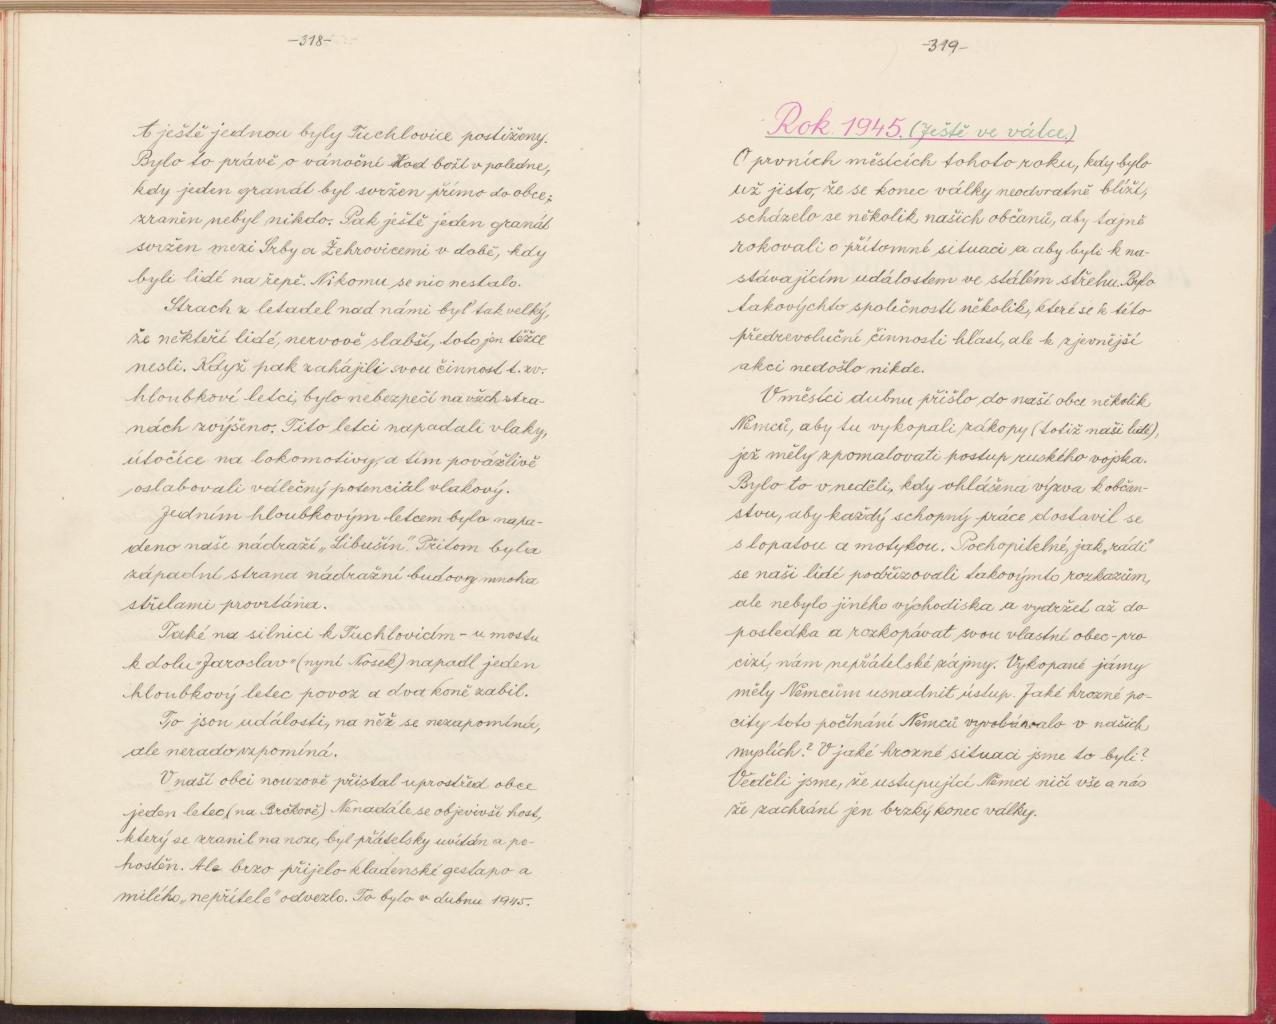 -318-
A ještě jednou byly Tuchlovice postiženy.
Bylo to právě o vánoční Hod boží v poledne,
kdy jeden granát byl svržen přímo do obce;
zraněn nebyl nikdo. Pak ještě jeden granát
svržen mezi Srby a Žehrovicemi v době, kdy
byli lidé na řepě. Nikomu se nic nestalo.
Strach z letadel nad námi byl tak velký,
že někteří lidé, nervově slabší, toto jen těžce
nesli. Když pak zahájili svou činnost t. zv.
hloubkoví letci, bylo nebezpečí na všech stra-
nách zvýšeno. Tito letci napadali vlaky,
útočíce na lokomotivy, a tím povážlivě
oslabovali válečný potenciál vlakový.
Jedním hloubkovým letcem bylo napa-
deno naše nádraží „Libušín". Přitom byla
západní strana nádražní budovy mnoha
střelami provrtána.
Také na silnici k Tuchlovicím - u mostu
k dolu „Jaroslav" (nyní Nosek) napadl jeden
hloubkový letec povoz a dva koně zabil.
To jsou události, na něž se nezapomíná,
ale nerado vzpomíná.
V naší obci nouzově přistal uprostřed obce
jeden letec, (na Brčkově) Nenadále se objevivší host,
který se zranil na noze, byl přátelsky uvítán a po-
hostěn. Ale brzo přijelo kladenské gestapo a
milého „nepřítele" odvezlo. To bylo v dubnu 1945.
-319-
Rok 1945. (Ještě ve válce.)
O prvních měsících tohoto roku, kdy bylo
už jisto, že se konec války neodvratně blíží,
scházelo se několik našich občanů, aby tajně
rokovali o přítomné situaci a aby byli k na-
stávajícím událostem ve stálém střehu. Bylo
takovýchto společností několik, které se k této
předrevoluční činnosti hlásí, ale k zjevnější
akci nedošlo nikde.
V měsíci dubnu přišlo do naší obce několik
Němců, aby tu vykopali zákopy (totiž naši lidé),
jež měly zpomalovati postup ruského vojska.
Bylo to v neděli, kdy ohlášena výzva k občan-
stvu, aby každý schopný práce dostavil se
s lopatou a motykou. Pochopitelné, jak „rádi"
se naši lidé podřizovali takovýmto rozkazům,
ale nebylo jiného východiska a vydržet až do
posledka a rozkopávat svou vlastní obec - pro
cizí, nám nepřátelské zájmy. Vykopané jámy
měly Němcům usnadnit ústup. Jaké hrozné po-
city toto počínání Němců vyvolávalo v našich
myslích? V jaké hrozné situaci jsme to byli?
Věděli jsme, že ustupující Němci ničí vše a nás
že zachrání jen brzký konec války.